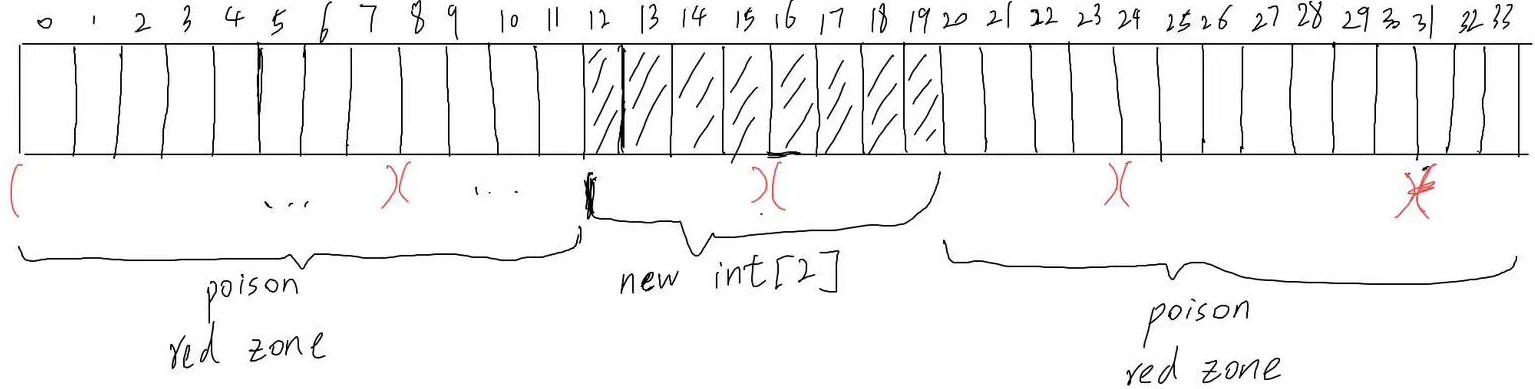 0 1 2 3 4 5 6 7 8 9 10 11 12 13 14 15 16 17 18 19 20 21 22 23 24 25 26 27 28 29 30 31 32 33
( ... )( ... )( )( )(
poison
red zone
new int[2]
poison
red zone